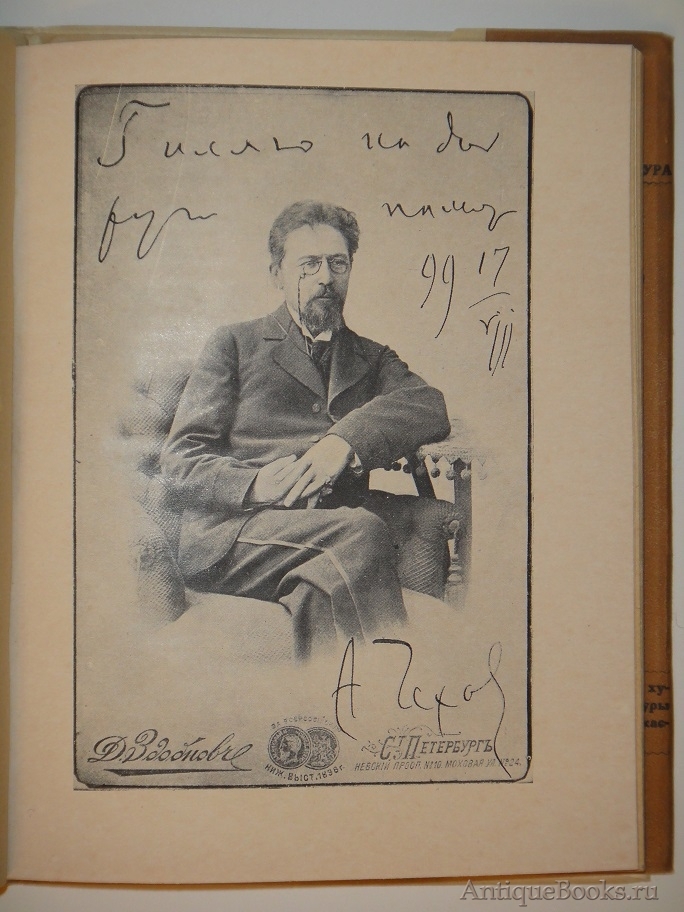 Гиляю на до
рую память
99 17/VIII
А Чехов
Д. Здобновъ
НИЖ. ВЫСТ. 1896 г.
С.Т ПЕТЕРБУРГЪ
НЕВСКІЙ ПРОСП. №10. МОХОВАЯ УЛ. №24.
УРА
ху-
уры
AntiqueBooks.ru